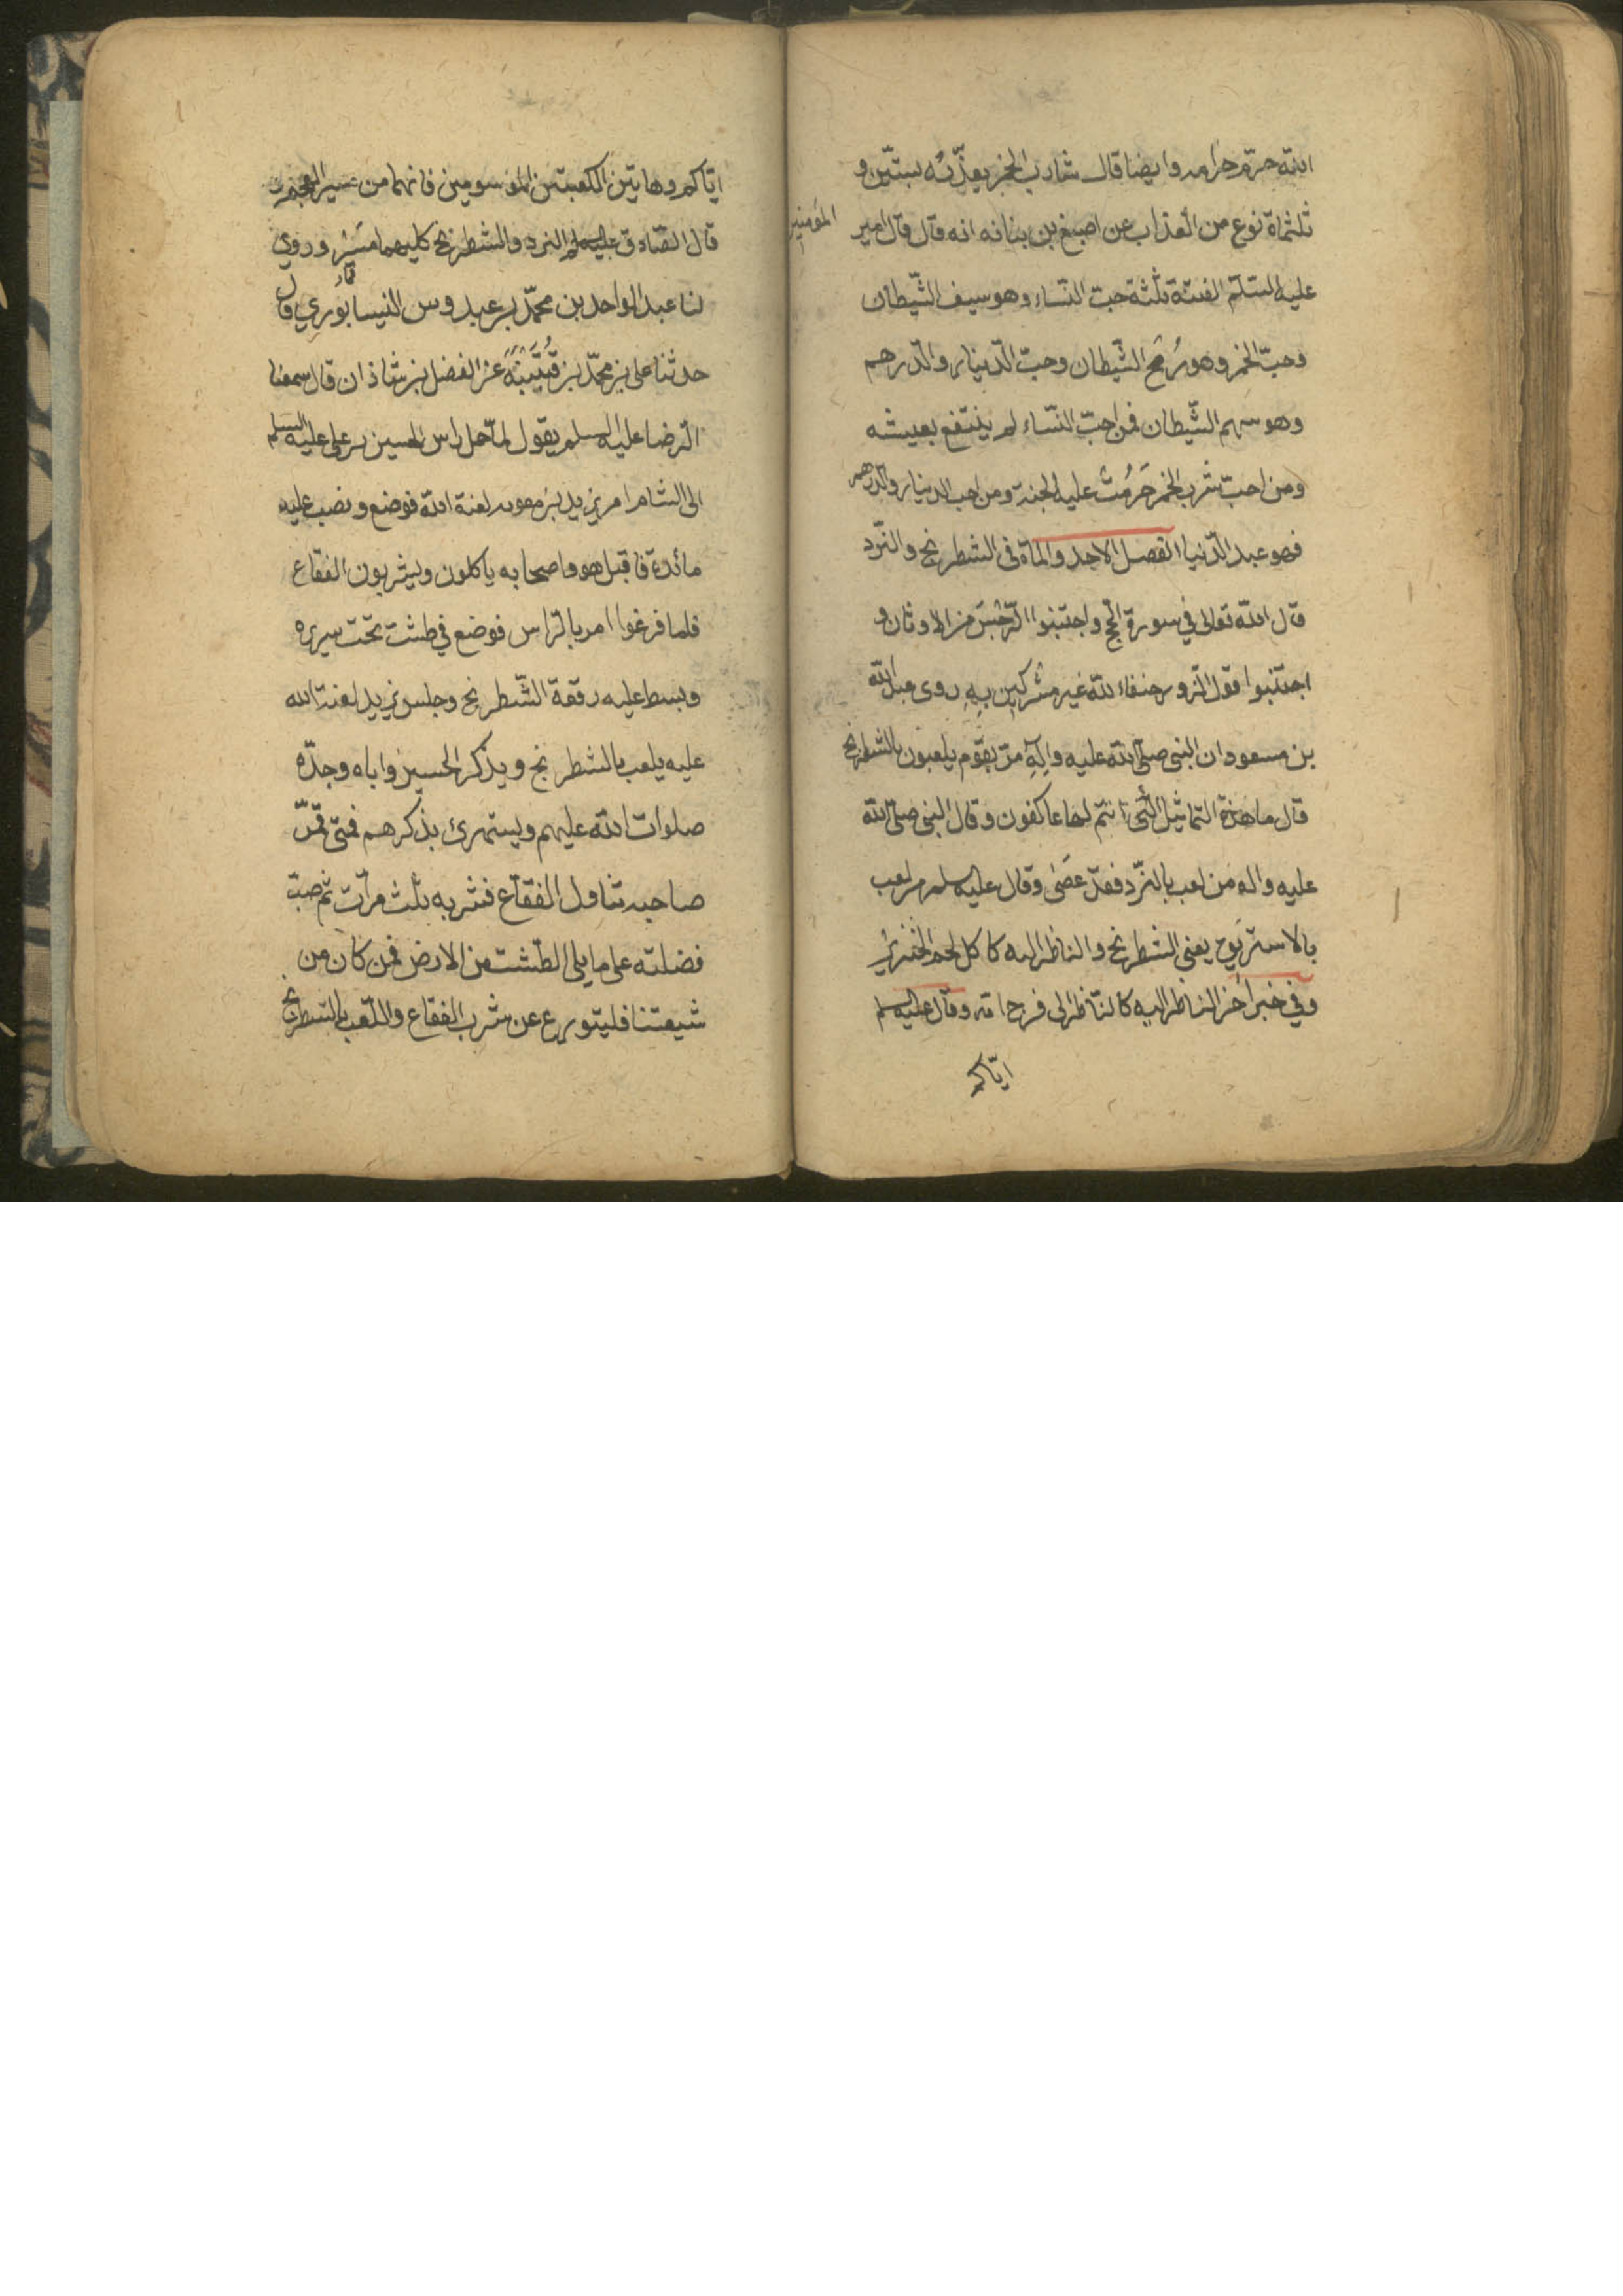 الله حرّم حرامه وايضا قال شارب الخمر يعذّبه بستّين و
ثلثماة نوع من العذاب عن اصبغ بن بنانه انه قال قال امير
المؤمنين
عليه السّلم الفتنة ثلثة حبّ النّساء وهو سيف الشّيطان
وحبّ الخمر وهو رُمح الشّيطان وحبّ الدّينار والدّرهم
وهو سهم الشّيطان فمن احبّ النّساء لم ينتفع بعيشه
ومن احبّ شرب الخمر حَرُمت عليه الجنة ومن احب الدينار والدّرهم
فهو عبد الدّنيا الفصل الاحد والماة فى الشطرنج والنّرد
قال الله تعالى في سورة الحج واجتنبوا الرّجْسَ من الاوثان و
اجتنبوا قول الزور حنفاء لله غير مشركين بِهِ روى عبد الله
بن مسعود ان النبى صلى الله عليه وآلِهِ مرّ بقوم يلعبون بالشطرنج
قال ما هذة التماثيل الّتى انتم لها عاكفون وقال النبى صلى الله
عليه واله من لعب بالنرّد فقد عَصَى وقال عليه سلم من لعب
بالاستريوح يعنى الشطرنج والناظر اليه كاكل لحم الخنزير
وفي خبر اخر الناظر اليه كالنّاظر الى فرج امّه وقال عليه السلم
ايّاكم
ايّاكم وهاتين الكعبتين الموسومين فانهما من ميسر العجم
قال الصّادق عليه السلم النرد والشطرنج كليهما مَيْسِر وروي
لنا عبد الواحد بن محمّد بن عبدوس النيسابوري قال
حدثنا على بن محمّد بن قُتَيْبَة عن الفضل بن شاذان قال سمعنا
الرّضا عليه السلم يقول لمّا حمل راس الحسين بن على عليه السلم
الى الشام امر يزيد بن معويه لعنة الله فوضع و نصب عليه
مائدة فاقبل هو واصحابه ياكلون ويشربون الفقاع
فلما فرغوا امر بالرّاس فوضع في طشت تحت سريره
وبسط عليه رقعة الشّطرنج وجلس يزيد لعنة الله
عليه يلعب بالشطرنج ويذكر الحسين واباه وجدّه
صلوات الله عليهم ويستهزئ بذكرهم فمتى قمّر
صاحبه تناول الفقّاع فشربه ثلث مرّات ثم صبّ
فضلته على ما يلى الطّشت من الارض فمن كان من
شيعتنا فليتورع عن شرب الفقاع واللّعب بالشطرنج